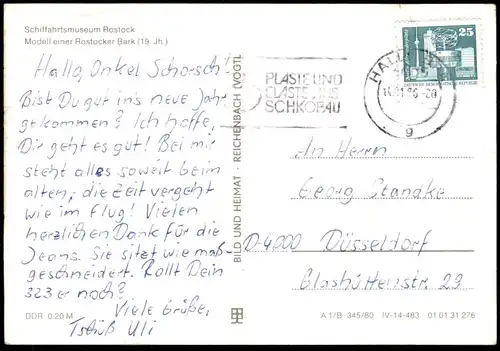 Schiffahrtsmuseum Rostock
Modell einer Rostocker Bark (19. Jh.)
Hallo, Onkel Schorsch!
Bist Du gut ins neue Jahr
gekommen? Ich hoffe,
Dir geht es gut! Bei mir
steht alles soweit beim
alten; die Zeit vergeht
wie im Flug! Vielen
herzlichen Dank für die
Jeans. Sie sitzt wie maß-
geschneidert. Rollt Dein
323er noch?
Viele Grüße,
Tschüß Uli
DDR 0.20 M
BILD UND HEIMAT · REICHENBACH (VOGTL
PLASTE UND
ELASTE AUS
SCHKOPAU
HALLE
g
25
DEUTSCHE DEMOKRATISCHE REPUBLIK
An Herrn
Georg Standke
D-4000 Düsseldorf
Glashüttenstr. 29
A 1/B 345/80 IV-14-483 01 01 31 276